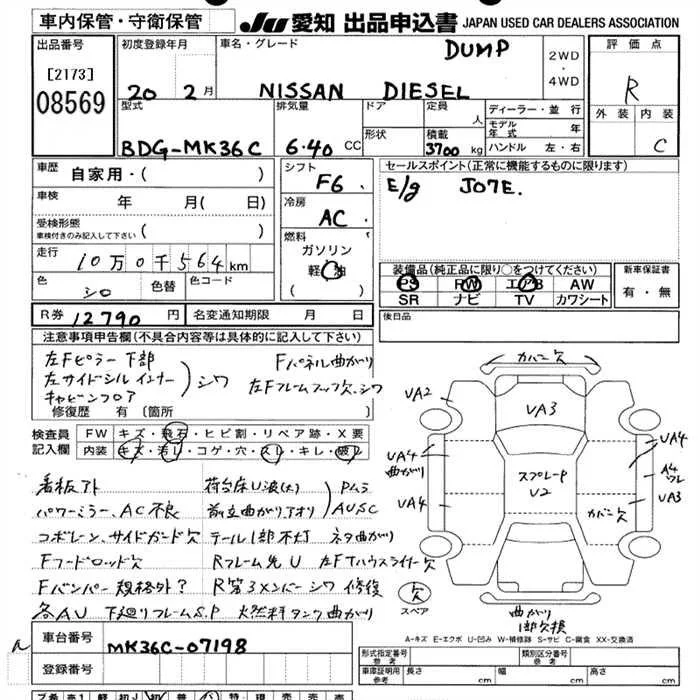 車内保管・守衛保管
JU 愛知 出品申込書 JAPAN USED CAR DEALERS ASSOCIATION
出品番号
[2173]
08569
初度登録年月
20 2月
車名・グレード
DUMP
NISSAN DIESEL
2WD
・
4WD
評価点
R
外装 内装
C
型式
BDG-MK36C
排気量
6.40 CC
ドア
形状
定員
人
積載
3700 kg
ディーラー・並行
モデル年式 年
ハンドル 左・右
車歴
自家用・( )
車検
年 月( 日)
受検形態
車検付きのみ記入して下さい ( )
走行
10万0千564km
色
シロ
色替
色コード
シフト
F6
冷房
AC
燃料
ガソリン
軽油
( )
セールスポイント(正常に機能するものに限ります)
E/g J07E.
装備品(純正品に限り○をつけてください)
PS PW エアB AW
SR ナビ TV カワシート
新車保証書
有・無
R券 12790円
名変通知期限 月 日
後日品
注意事項申告欄(不具合内容等は具体的に記入して下さい)
左Fピラー下部
左サイドシルインナー
キャビンフロア
シワ
Fパネル曲がり
左Fフレームフック欠、シワ
修復歴 有 (箇所 )
検査員
記入欄
FW キズ・飛石・ヒビ割・リペア跡・X要
内装 キズ・汚レ・コゲ・穴・スレ・キレ・破レ
看板アト
荷台床U波(大)
Pムラ
パワーミラー、AC不良
前立曲がりアオリ
AUSC
コボレーン、サイドガード欠
テール1部不灯
ネタ曲がり
Fフードロッド欠
Rフレーム先U
左FTハウスライナー欠
Fバンパー規格外?
R第3メンバーシワ修復
各AU
下廻りフレームS.P
燃料タンク曲がり
カバー欠
UA2
UA3
UA4
曲がり
UA4
スプレーP
U2
UA4
A4
UA3
カバー欠
欠
スペア
曲がり
1部欠損
A-キズ E-エクボ U-凹み W-補修跡 S-サビ C-腐食 XX-交換済
車台番号
MK36C-07198
登録番号
型式指定番号
参考
類別区分番号
参考
車庫証明
参考
長さ cm 幅 cm 高さ cm